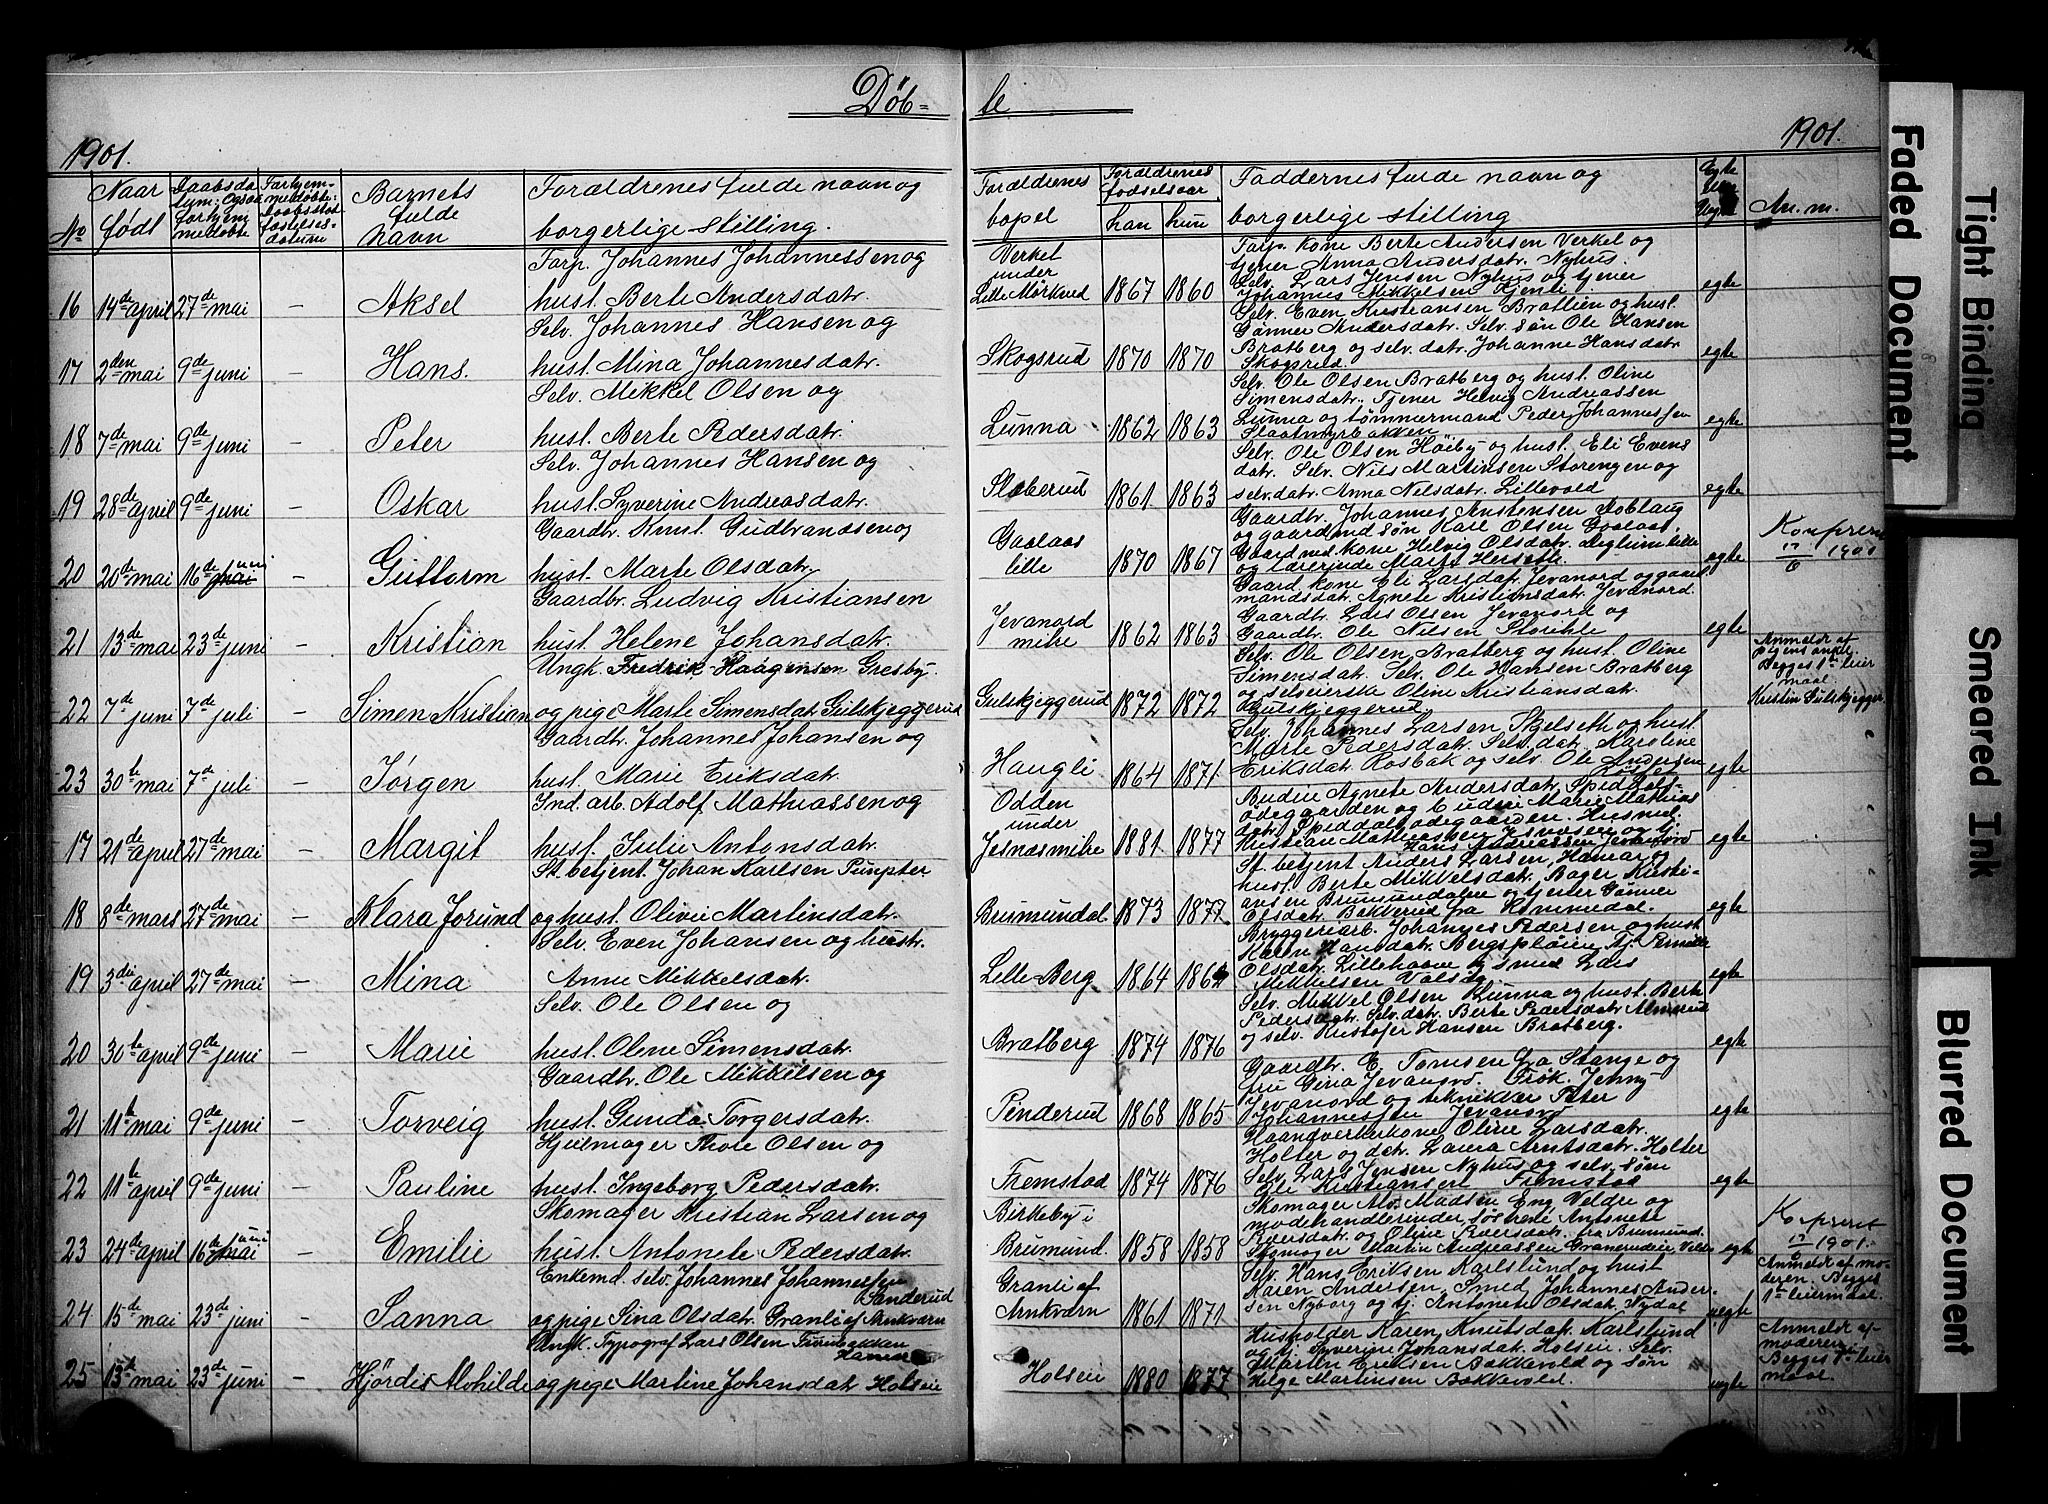 Døb=
te
1901.
1901.
No
Naar født
Daabsdatum; Ogsaa for hjemmedøbte
Barnets fulde navn
Forældrenes fulde navn og borgerlige stilling.
Forældrenes bopel
Forældrenes fødselsaar
han
hun
Faddernes fulde navn og borgerlige stilling
Egte
Uegte
An. m.
16 14de april 27de mai — Aksel
Forp. Johannes Johannessen og
hust. Berte Andersdatr.
Verkel
under
Lille Mørkved 1867 1860
Forp. kone Berte Andersen Verkel og
tjener Anna Andersdatr. Nyhus.
Selv. Lars Jensen Nyhus og tjener
Johannes Mikkelsen
egte
17 2den mai 9de juni — Hans.
Selv. Johannes Hansen og
hust. Mina Johannesdatr.
Skogsrud 1870 1870
Selv. Even Kristiansen Bratlien og hust.
Gønner Andersdatr. Selv. søn Ole Hansen
Bratberg og selv. datr. Johanne Hansdatr
Skogsrud.
egte
18 7de mai 9de juni — Peter
Selv. Mikkel Olsen og
hust. Berte Pedersdatr.
Lunna 1862 1863
Selv. Ole Olsen Bratberg og hust. Oline
Simensdatr. Tjener Helvig Andreassen
Lunna og tømmermand Peder Johannessen
Slaatmyrbakken
egte
19 28de april 9de juni — Oskar
Selv. Johannes Hansen og
hust. Syverine Andreasdatr.
Slaberud 1861 1863
Selv. Ole Olsen Høiby og hust. Eli Evens
datr. Selv. Nils Martinsen Storengen og
selv. datr. Anna Nilsdatr. Lillevold
egte
20 20de mai 16de juni — Guttorm
Gaardbr. Knut Gudbrandsen og
hust. Marte Olsdatr.
Gaalaas
lille 1870 1867
Gaardbr. Johannes Anstensen
og gaardmd søn Karl Olsen Gaalaas.
Gaard md. kone Helvig Olsdatr. lille
og lærerinde Marta
egte
1901
21 13de mai 23de juni — Kristian
Gaardbr. Ludvig Kristiansen
hust. Helene Johansdatr.
Jevanord
mitre 1862 1863
Gaard. kone Eli Larsdatr Jevanord og gaard
mandsdatr. Agnete Kristiansdatr. Jevanord.
Gaardbr. Lars Olsen Jevanord og
Gaardbr. Ole Nilsen
egte
22 7de juni 7de juli — Simen Kristian
Ungk. Fredrik Haagensen Gresby
og pige Marte Simensdatr Gulskjeggerud
Gulskjeggerud 1872 1872
Selv. Ole Olsen Bratberg og hust. Oline
Simensdatr. Selv. Ole Hansen Bratberg
og selveierske Oline Kristiansdatr.
Gulskjeggerud
Anmeldt af
pigens onkle.
Begges 1ste leier
maal.
Kristen Gulskjegger
23 30te mai 7de juli — Jørgen
Gaardbr. Johannes Johansen og
hust. Marie Eriksdatr.
Haugli 1864 1871
Selv. Johannes Larsen Skelseth og hust.
Marte Pedersdatr. Selv. datr. Karoline
Eriksdatr. Rosbak og selv. Ole Andersen
egte
17 21de april 27de mai — Margit
Ind. arb. Adolf Mathiassen og
hust. Julie Antonsdatr.
Odden
under
Jesnæsmitre 1881 1877
Budeie Agnete Andersdatr. Spiddals-
ødegaarden og budeie Marie Mathias
datr. Spiddalsødegaarden. Husmd.
Kristian Mathiassen Jesnæsen og tj.
Hans Andreassen Jevanord
egte
18 8de mars 27de mai — Klara Jorund
St. betjent. Johan Karlsen Punpter
og hust. Olivie Martinsdatr.
Brumundal. 1873 1877
St. betjent Anders Larsen, Hamar og
hust. Berte Mikkelsdatr. Bager Kristi-
ansen Brumunddalen og tjener Gønner
Olsdatr. Bakkerud fra
egte
19 3die april 27de mai — Mina
Selv. Even Johansen og hustr.
Anne Mikkelsdatr.
Lille Berg 1864
Bryggeriarb. Johannes Pedersen og hust.
Karen Hansdatr. Bergspladen, Tj. Pernille
Olsdatr. Lillehaave og smed Lars
Mikkelsen
egte
20 30te april 9de juni — Marie
Selv. Ole Olsen og
hust. Oline Simensdatr.
Bratberg 1874 1876
Selv. Mikkel Olsen Lunna og hust. Berte
Pedersdatr. Selv. datr. Berte Pedersdatr Almerud
og selv. Kristofer Hansen Bratberg.
egte
21 11te mai 9de juni — Torveig
Gaardbr. Ole Mikkelsen og
hust. Gunda Torgersdatr.
Pinderud 1868 1865
Gaardbr. E. Tomsen fra Stange og
fru Gina Jevanord. Frøk. Jenny
Jevanord og tekniker Peter
Johannessen Jevanord
egte
22 11te april 9de juni — Pauline
Hjulmager Thole Olsen og
hust. Ingeborg Pedersdatr.
Fremstad 1874 1876
Haandverkerkone Oline Larsdatr.
Holter og datr. Laura Arntsdatr. Holter
Selv. Lars Jensen Nyhus og selv. søn
Ole Kristiansen Fremstad
egte
23 24de april 16de juni — Emilie
Skomager Kristian Larsen og
hust. Antonete Pedersdatr.
Birkeby i
Brumund. 1858 1858
Skomager Madsen Eng Veldre og
modehandlerinder søstrene Antonete
Pedersdatr. og Oline Pedersdatr. fra Brumund.
Skomager Martin Andreassen
egte
1901.
24 15de mai 23de juni — Sanna
Enkemd. selv. Johannes Johannessen
Sanderud
og pige Sina Olsdatr. Granli af Arnkværn
Granli af
Arnkværn 1861 1871
Selv. Hans Eriksen Karlslund og hust
Karen Andersen, Smed Johannes Ander-
sen Nyborg og tj. Antonete Olsdatr. Nydal
uegte
Anmeldt af mo-
deren. Begges
1ste leiermaal.
25 13de mai 23de juni — Hjørdis Alvhilde
Ungk. Typograf Lars Olsen
Hamar
og pige Martine Johansdatr Holsen
Holsen 1880 1877
Husholder Karen Knutsdatr. Karlslund
og tj. Syverine Johansdatr. Holsen. Selv.
Martin Eriksen Bakkevold og søn
Helge Martinsen Bakkevold.
uegte
Anmeldt af
moderen
Begges 1ste leier
maal.
Faded Document
Tight Binding
Smeared Ink
Blurred Document